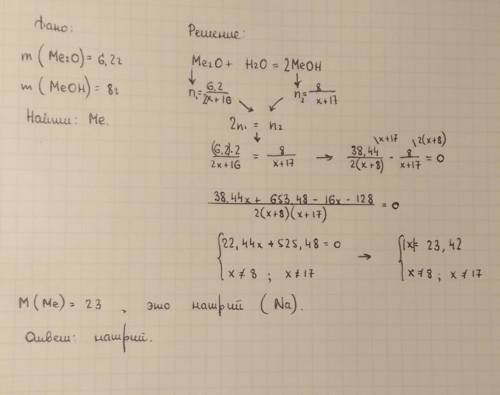 Дано:
m (Me₂O) = 6,2г
m (MeOH) = 8г
Найти: Me.
Решение:
Me₂O + H₂O = 2MeOH
n₁ = 6,2 / 2x+16    n₂ = 8 / x+17
2n₁ = n₂
(6,2)·2 / 2x+16 = 8 / x+17 → 38,44 \x+17 / 2(x+8) - 8 \2(x+8) / x+17 = 0
38,44x + 653,48 - 16x - 128 / 2(x+8)(x+17) = 0
{ 22,44x + 525,48 = 0 → { |x| = 23,42
x ≠ 8 ; x ≠ 17    x ≠ 8 ; x ≠ 17
M (Me) = 23 , это натрий (Na).
Ответ: натрий.